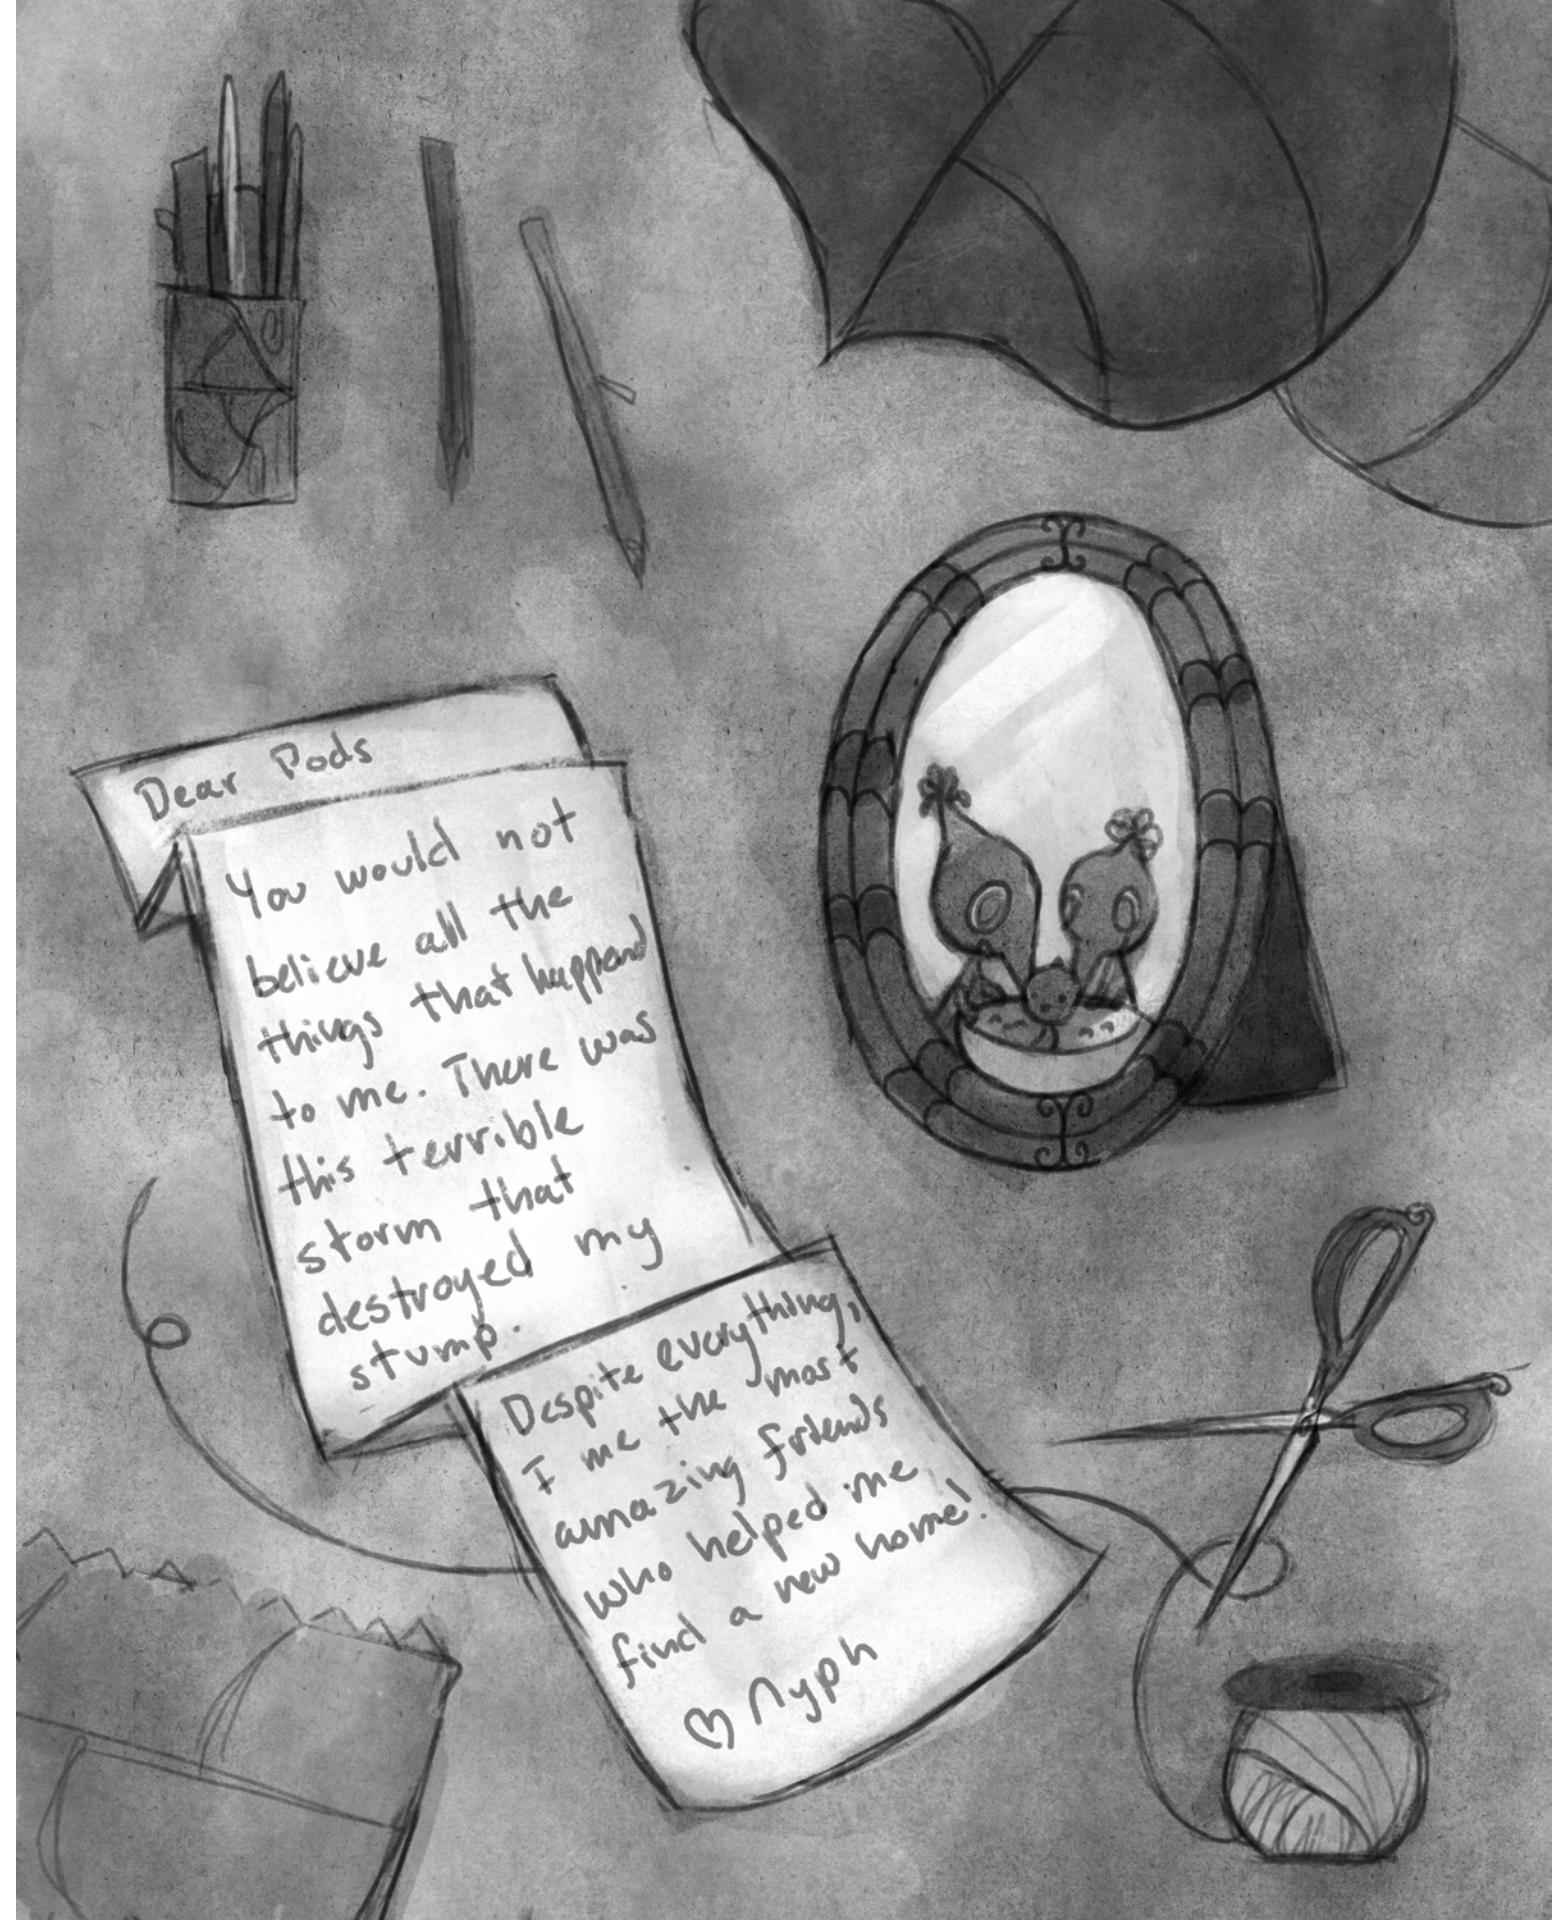 Dear Pods
You would not
believe all the
things that happend
to me. There was
this terrible
storm that
destroyed my
stump.
Despite everything,
I me the most
amazing friends
who helped me
find a new home!
♡ Nyph